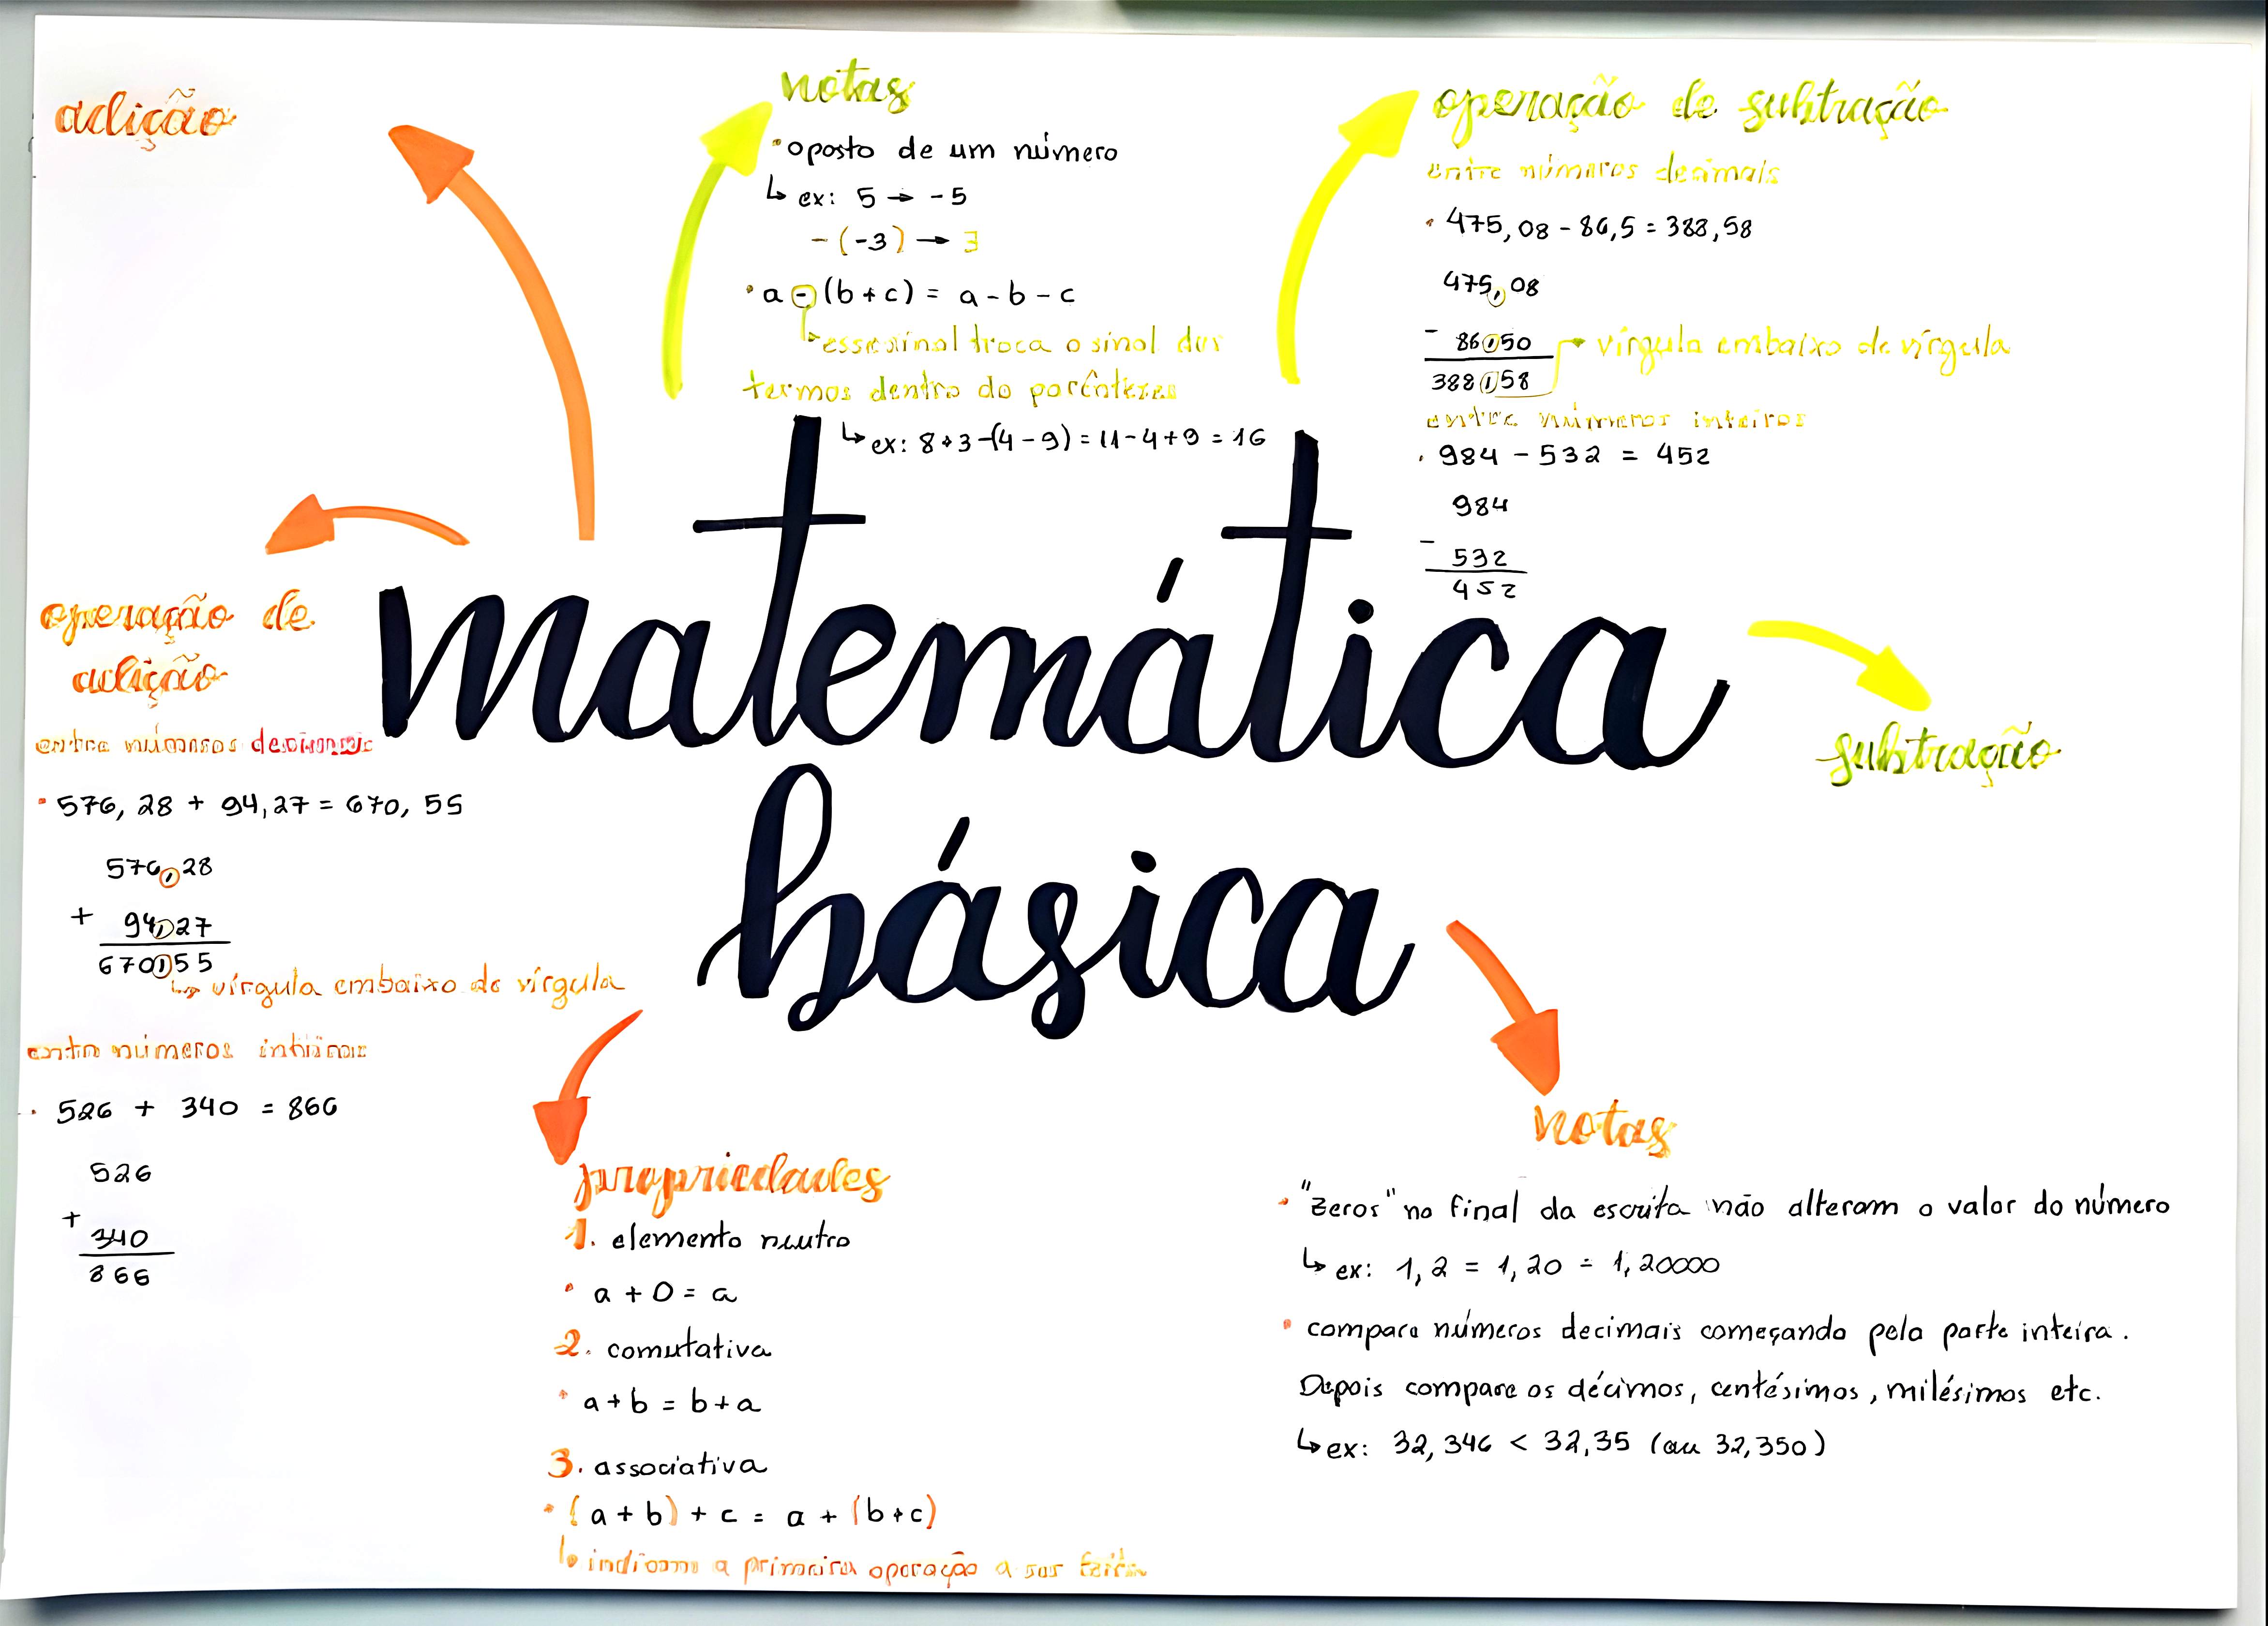 adição
notas
• oposto de um número
↳ ex: 5 → -5
-(-3) → 3
• a - (b + c) = a - b - c
↳ esse sinal troca o sinal dos
termos dentro do parênteses
↳ ex: 8 + 3 - (4 - 9) = 11 - 4 + 9 = 16
operação de subtração
entre números decimais
• 475,08 - 86,5 = 388,58
475,08
- 86,50
388,58
→ vírgula embaixo de vírgula
entre números inteiros
• 984 - 532 = 452
984
- 532
452
matemática
básica
subtração
operação de
adição
entre números decimais
• 576,28 + 94,27 = 670,55
576,28
+ 94,27
670,55
↳ vírgula embaixo de vírgula
entre números inteiros
• 526 + 340 = 866
526
+ 340
866
propriedades
1. elemento neutro
• a + 0 = a
2. comutativa
• a + b = b + a
3. associativa
• (a + b) + c = a + (b + c)
↳ indicam a primeira operação a ser feita
notas
• "zeros" no final da escrita não alteram o valor do número
↳ ex: 1,2 = 1,20 = 1,20000
• compare números decimais começando pela parte inteira.
Depois compare os décimos, centésimos, milésimos etc.
↳ ex: 32,346 < 32,35 (ou 32,350)